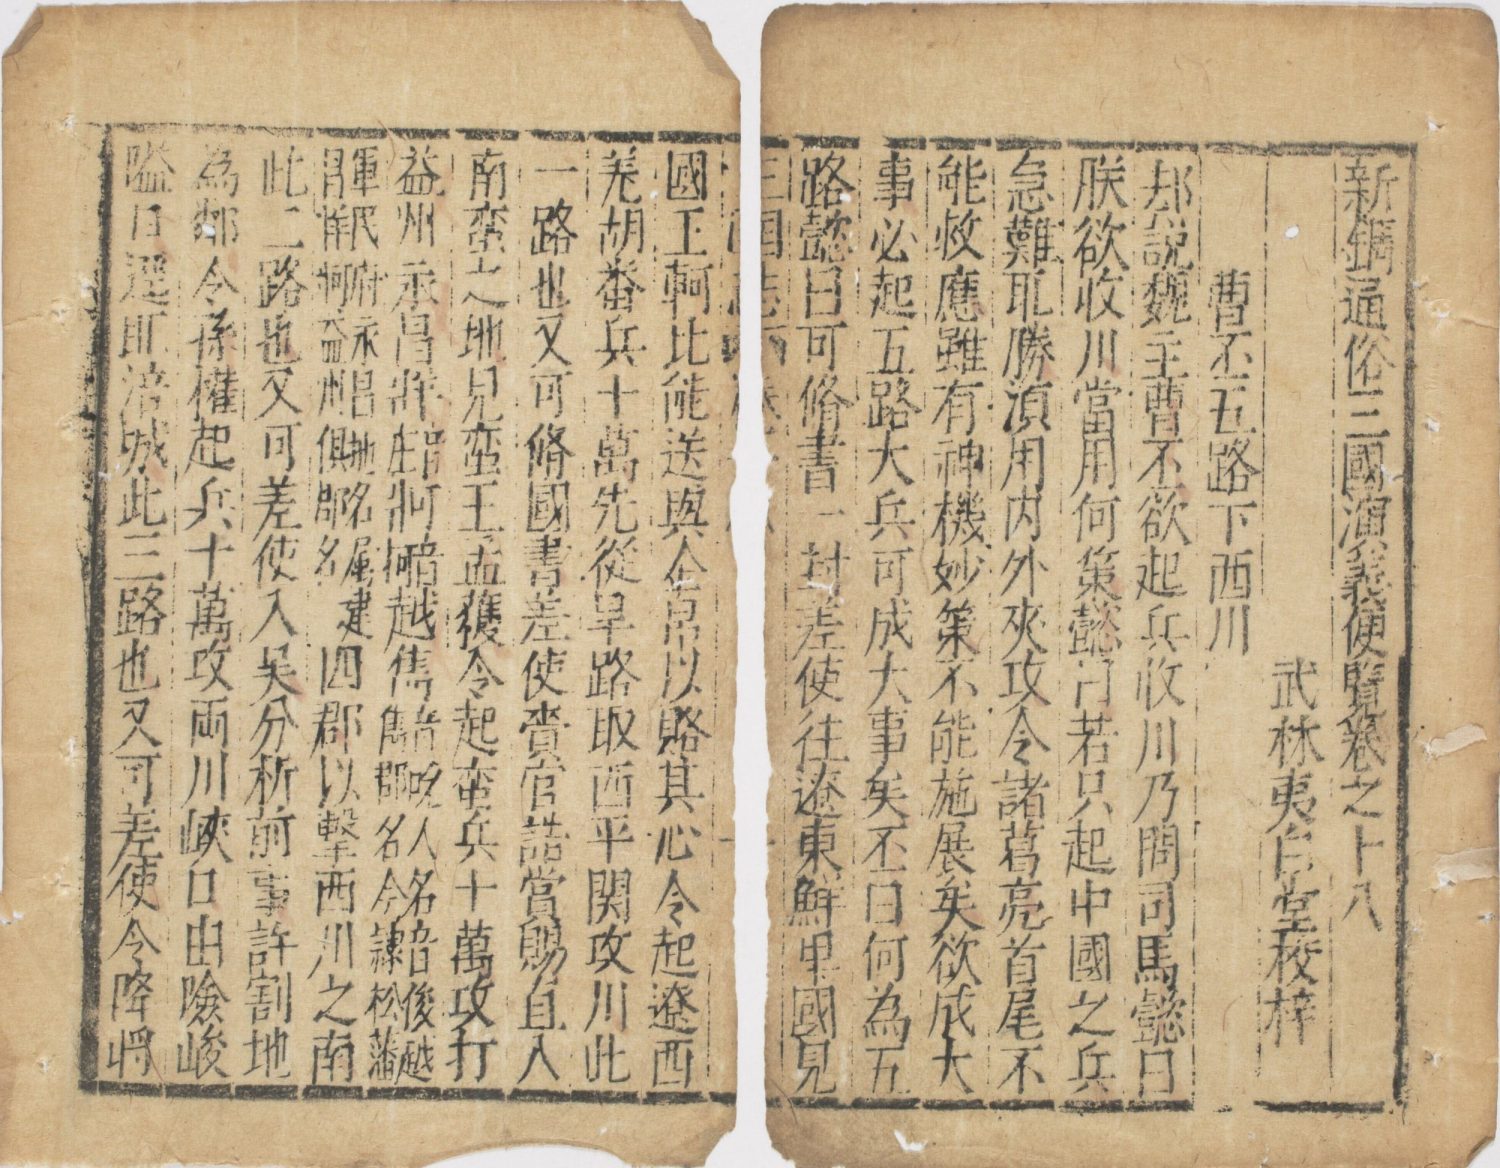 新鐫通俗三國演義便覽卷之十八
武林夷白堂校梓
曹丕五路下西川
却說魏主曹丕欲起兵收川乃問司馬懿曰
朕欲收川當用何策懿曰若只起中國之兵
急難取勝湏用内外夾攻令諸葛亮首尾不
能救應雖有神機妙策不能施展矣欲成大
事必起五路大兵可成大事矣丕曰何為五
路懿曰可脩書一封差使往遼東鮮卑國見
三國志
國王軻比能送與金帛以賂其心令起遼西
羌胡番兵十萬先從旱路取西平関攻川此
一路也又可脩國書差使賫官誥賞賜直入
南蛮之地見蛮王孟獲令起蛮兵十萬攻打
益州永昌牂音庄牁音柯越雋雋音晚人名音俊越郡名今隷松藩
軍民府永昌地名属建昌牂牁益州俱郡名四郡以擊西川之南
此二路也又可差使入吴分析前事許割地
為鄰令孫權起兵十萬攻両川峽口由險峻
嗌口逕取涪城此三路也又可差使令降將